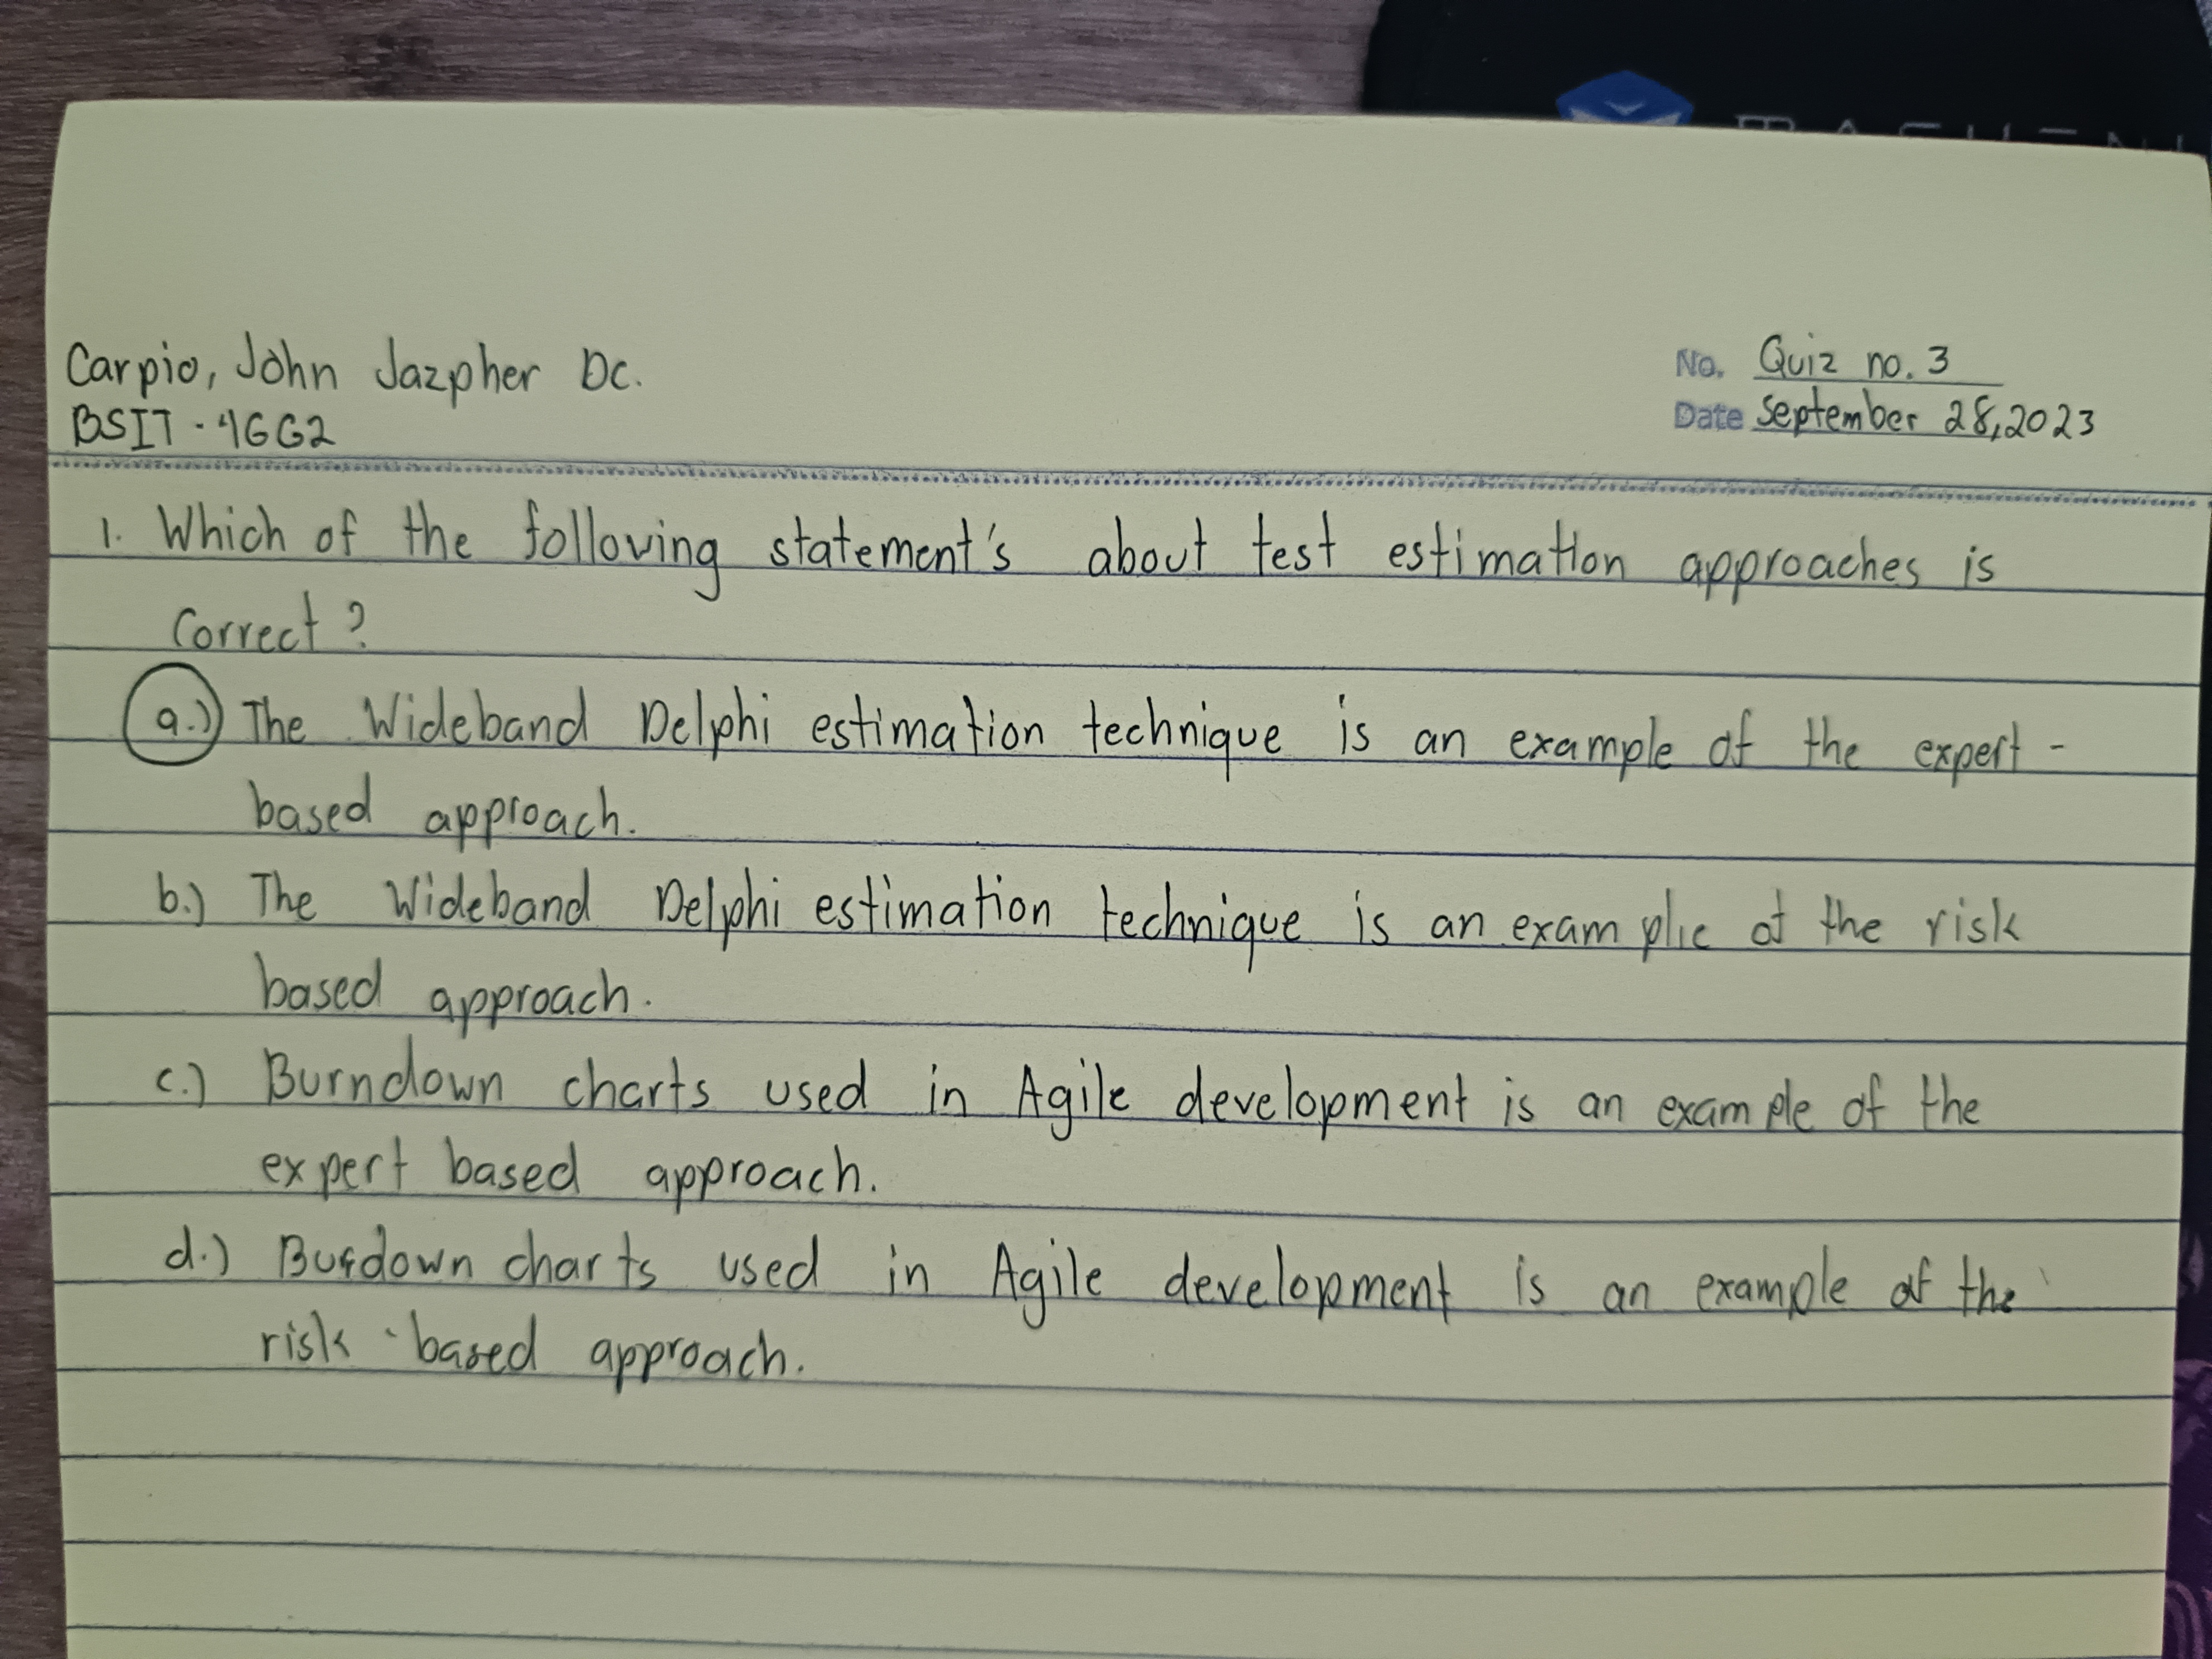 Carpio, John Jazpher Dc.
BSIT - 4GG2
No. Quiz no. 3
Date September 28, 2023
1. Which of the following statement's about test estimation approaches is
correct?
a.) The Wideband Delphi estimation technique is an example of the expert -
based approach.
b.) The Wideband Delphi estimation technique is an example of the risk
based approach.
c.) Burndown charts used in Agile development is an example of the
expert based approach.
d.) Burdown charts used in Agile development is an example of the
risk - based approach.